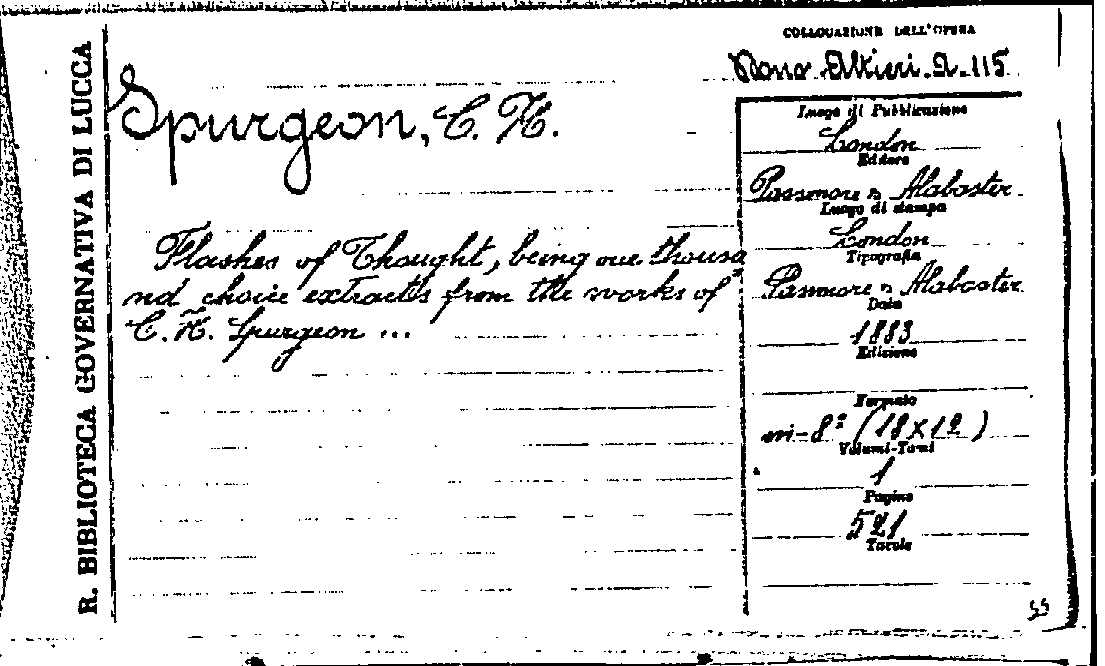 R. BIBLIOTECA GOVERNATIVA DI LUCCA
COLLOCAZIONE DELL'OPERA
Dono Altieri. A. 115
Spurgeon, C. H.
Flashes of Thought, being one thousa
nd choice extracts from the works of
C. H. Spurgeon ...
Luogo di Pubblicazione
London
Editore
Passmore & Alabaster
Luogo di stampa
London
Tipografia
Passmore & Alabaster
Data
1883
Edizione
Formato
in-8º (18x12)
Volumi-Tomi
1
Pagine
521
Tavole